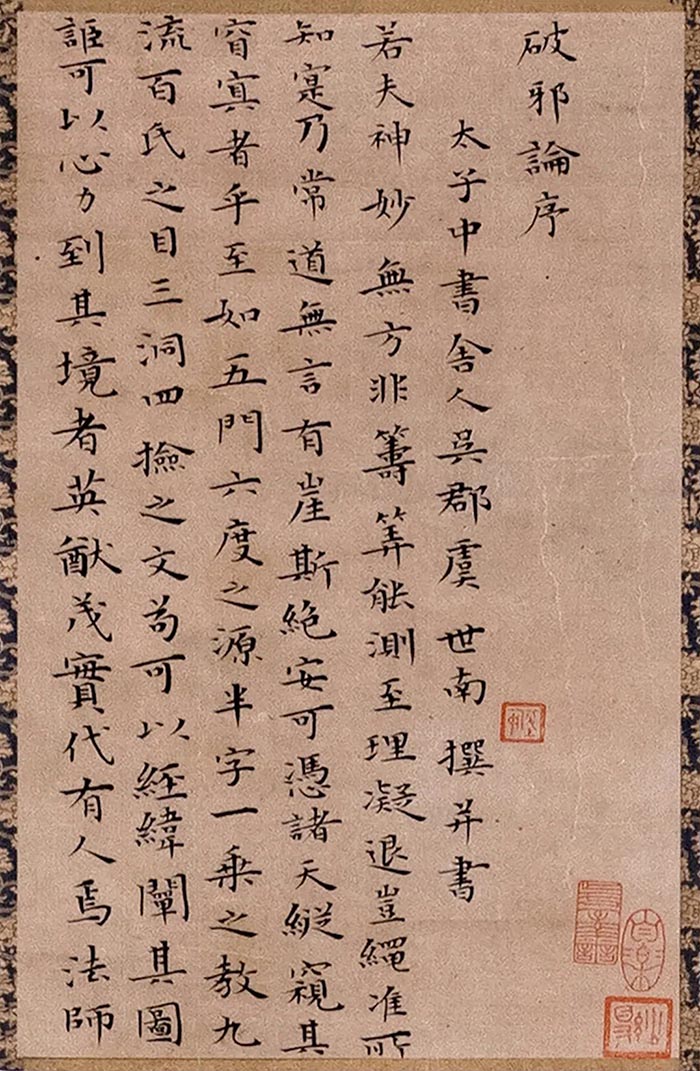 破邪論序
太子中書舍人吳郡虞世南撰并書
若夫神妙無方非籌筭能測至理凝退豈繩准所
知寔乃常道無言有崖斯絕安可憑諸天縱窺其
窅㝠者乎至如五門六度之源半字一乘之教九
流百氏之目三洞四撿之文苟可以經緯闡其圖
詎可以心力到其境者英猷茂實代有人焉法師